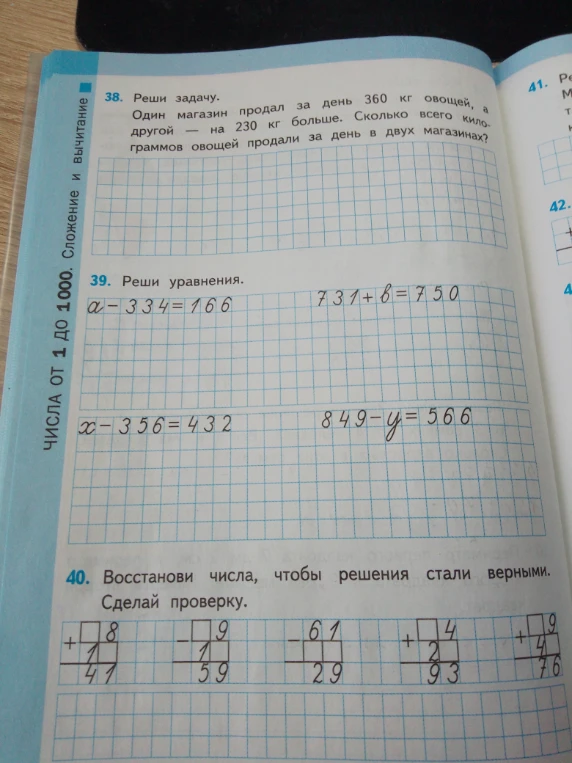 ЧИСЛА ОТ 1 ДО 1000. Сложение и вычитание
38. Реши задачу.
Один магазин продал за день 360 кг овощей, а
другой — на 230 кг больше. Сколько всего кило-
граммов овощей продали за день в двух магазинах?
39. Реши уравнения.
a − 334 = 166 731 + b = 750
x − 356 = 432 849 − y = 566
40. Восстанови числа, чтобы решения стали верными.
Сделай проверку.
+ □8 − □9 − 61 + □4 + □9
1□ 1□ □□ 2□ 4□
41 59 29 93 76
41. Р
М
т
42.
+
4